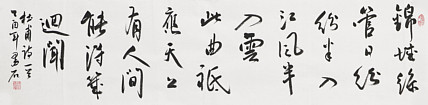 錦城絲
管日紛
紛半入
江風半
入雲
此曲祇
應天上
有人間
能得幾
迴聞
杜甫詩一首